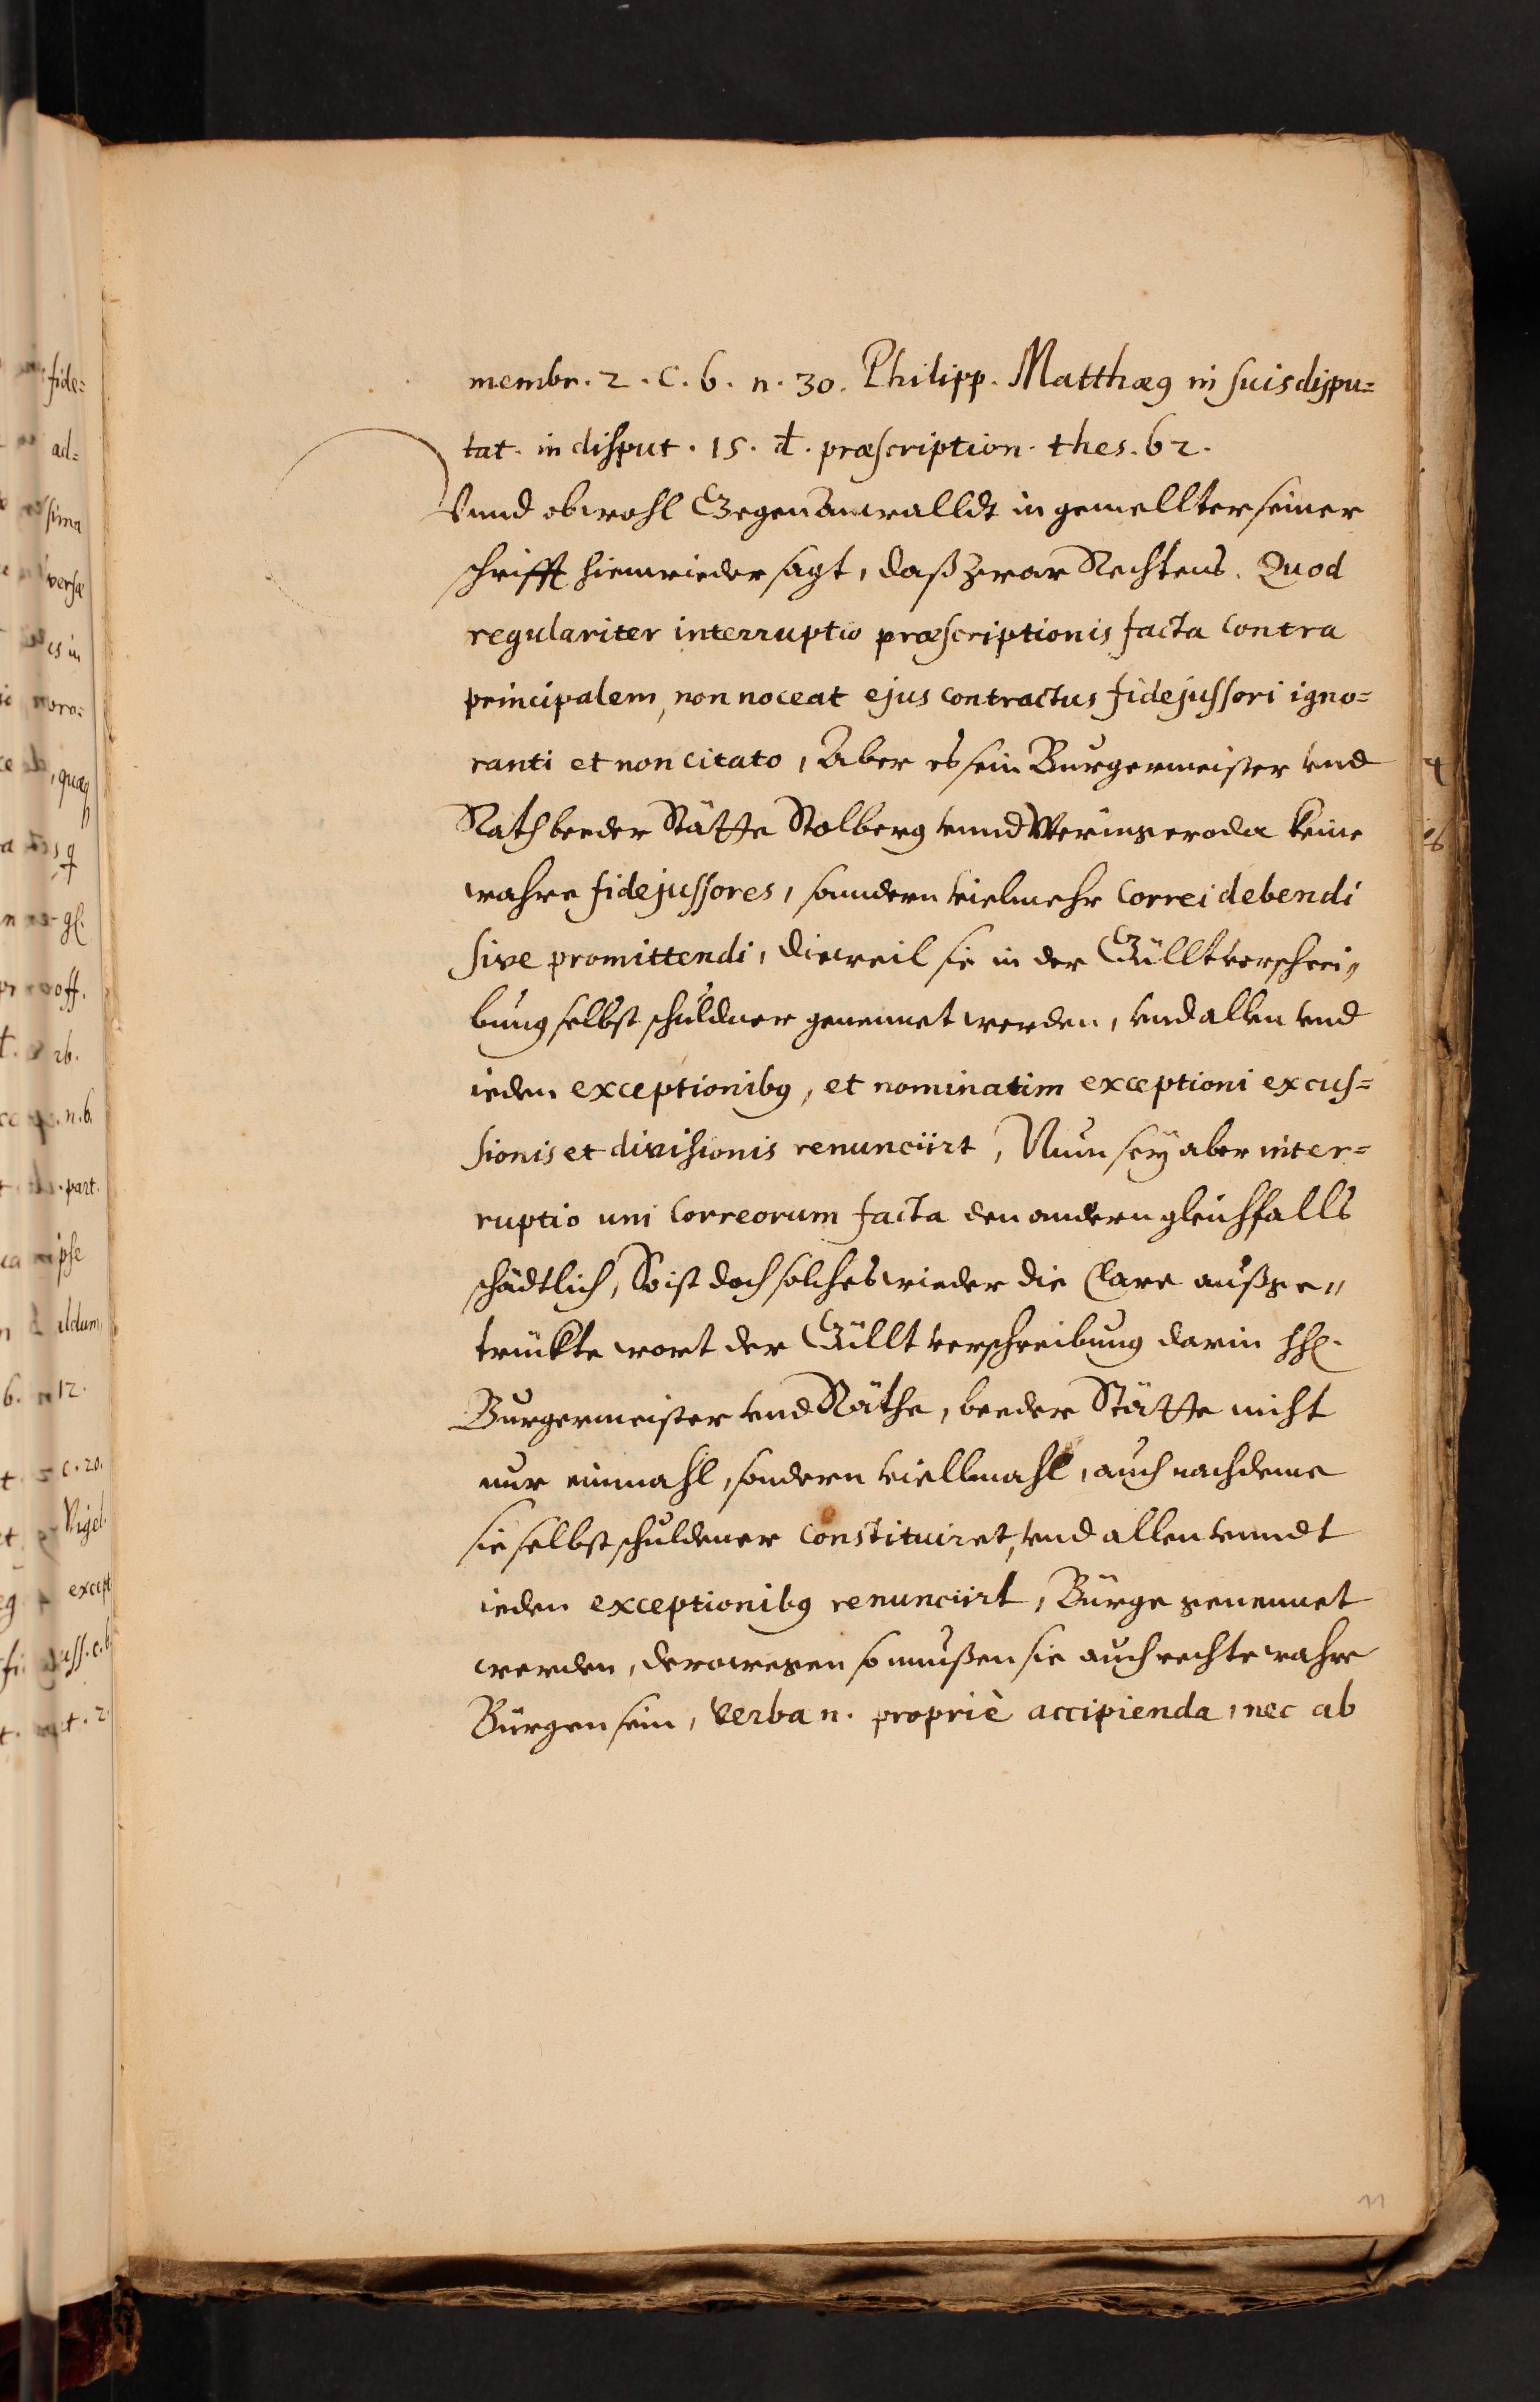 membr. 2. c. 6. n. 30. Philipp. Matthæ9 in suis dispu=
tat. in disput. 15. d. præscription. thes. 62.
Vnnd obwohl Gegen Anwalldt in gemellter seiner
schrifft hinwieder sagt, daß zwar Rechtens. Quod
regulariter interruptio præscriptionis facta contra
principalem, non noceat ejus contractus fidejussori igno=
ranti et non citato, Aber es sein Burgermeister vnd
Rath beeder Stätte Stolberg vnnd Wernigeroda keine
wahre fidejussores, sonndern vielmehr Correi debendi
sive promittendi, dieweil sie in der Gülltverschrei„
bung selbst schuldner genennet werden, vnd allen vnd
ieden exceptionib9, et nominatim exceptioni excus=
sionis et divisionis renunciirt, Nunn seÿ aber inter=
ruptio uni Correorum facta den andern gleichfalls
schädtlich, So ist doch solches wieder die Clare außge„
trückte wort der Güllt verschreibung darin hh.
Burgermeister vnd Räthe, beeder Stätte nicht
nur einmahl, sondern viellmahl, auch nachdeme
sie selbst schuldener constituiret, vnd allen vnndt
ieden exceptionib9 renunciirt, Bürge genennet
werden, derowegen so mußen sie auch rechte wahre
Bürgen sein, Verba n. propriè accipienda, nec ab
11
fide=
ad=
sima
versæ
oro=
quæq
off.
n. 6.
part.
ipse
12.
c. 20.
Nigel.
except